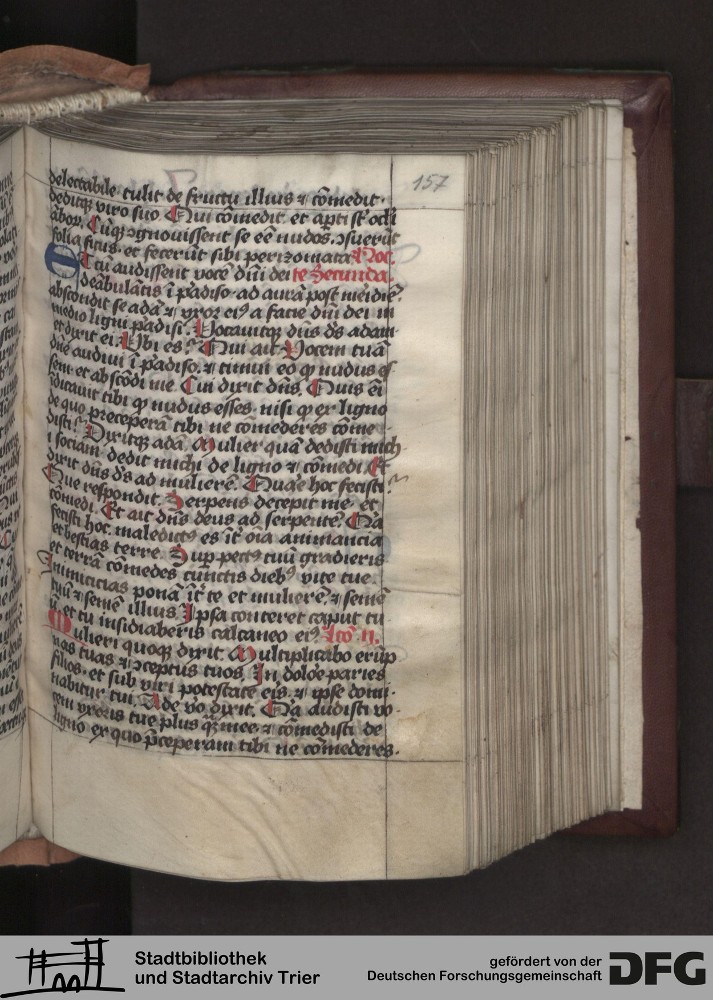 157
delectabile. tulit de fructu illius ⁊ cõmedit.
deditqꝫ viro suo Qui cõmedit. et apti sũt oc̃li
abor. Cũqꝫ ɔgnouissent se eẽ nudos. ɔsuerũt
folia ficus. et fecerũt sibi perizomata Noc.
Et cũ audissent vocẽ dñi dei te Secunda.
deãbulãtis ĩ padiso ad aurã post meidiẽ.
abscondit se adã ⁊ vxor eiꝰ a facie dñi dei in
medio ligni padisi. Vocauitqꝫ dñs dš adam
et dixit ei. Vbi es? Qui ait. Vocem tuã
dñe audiui ĩ padiso. ⁊ timui eo ꝙ nudus es
sem. et abscõdi me. Cui dixit dñs. Quis eĩ
ĩdicauit tibi ꝙ nudus esses. nisi ꝙ ex ligno
de quo preceperã tibi ne comederes cõme
disti? Dixitqꝫ adã. Mulier quã dedisti mich
i sociam. dedit michi de ligno ⁊ cõmedi. Et
dixit dñs dš ad mulierẽ. Quare hoc fecisti?
Que respondit. Serpens decepit me. et
cõmedi. Et ait dñs deus ad serpentẽ. Qa
fecisti hoc. maledictꝰ es ĩt̾ oĩa animancia
et bestias terre. Sup pectꝰ tuũ gradieris
et terrã cõmedes cunctis diebꝰ vite tue.
Inimicicias ponã ĩt̾ te et mulierẽ ⁊ semẽ
tuũ ⁊ semẽ illius. Ipsa conteret caput tu
ũ. et tu insidiaberis calcaneo eiꝰ. Lc̃o .ii.
Mulieri quoqꝫ dixit. Multiplicabo erũp
nas tuas ⁊ ɔceptus tuos. In dolore paries
filios. et sub viri potestate eris. ⁊ ipse domi
nabitur tui. Ade vo dixit. Qa audisti vo
cem vxoris tue plus qꝫ mee. ⁊ cõmedisti de
ligno ex quo p̃ceperam tibi ne cõmederes.
Stadtbibliothek
und Stadtarchiv Trier
gefördert von der
Deutschen Forschungsgemeinschaft
DFG